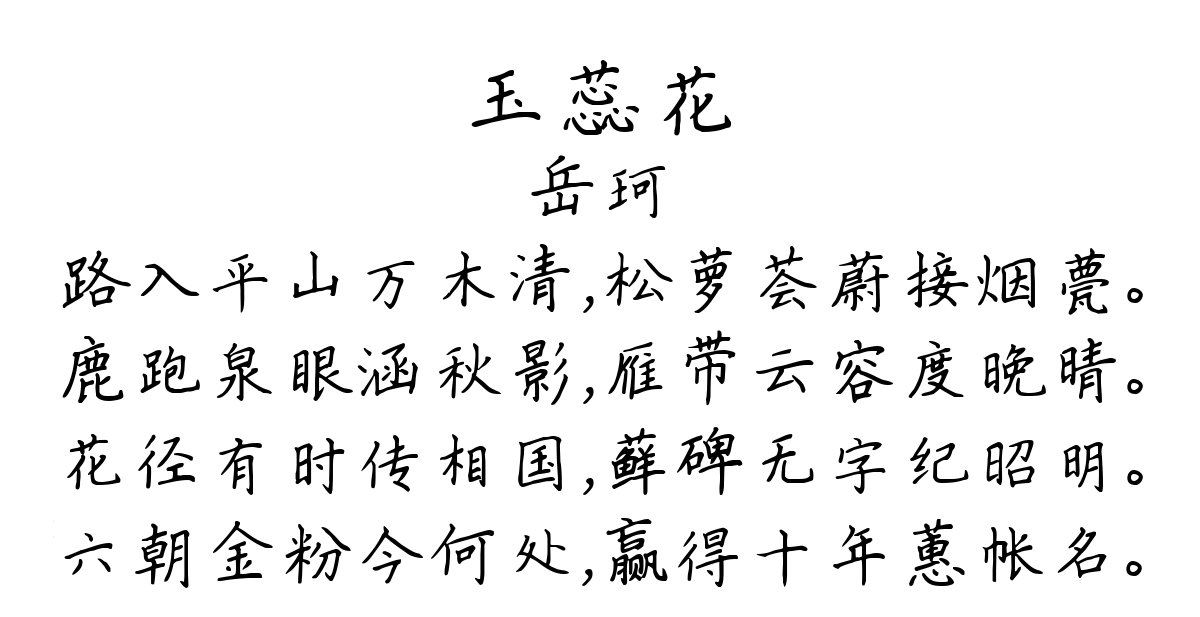 玉蕊花
岳珂
路入平山万木清,松萝荟蔚接烟甍。
鹿跑泉眼涵秋影,雁带云容度晚晴。
花径有时传相国,藓碑无字纪昭明。
六朝金粉今何处,赢得十年蕙帐名。